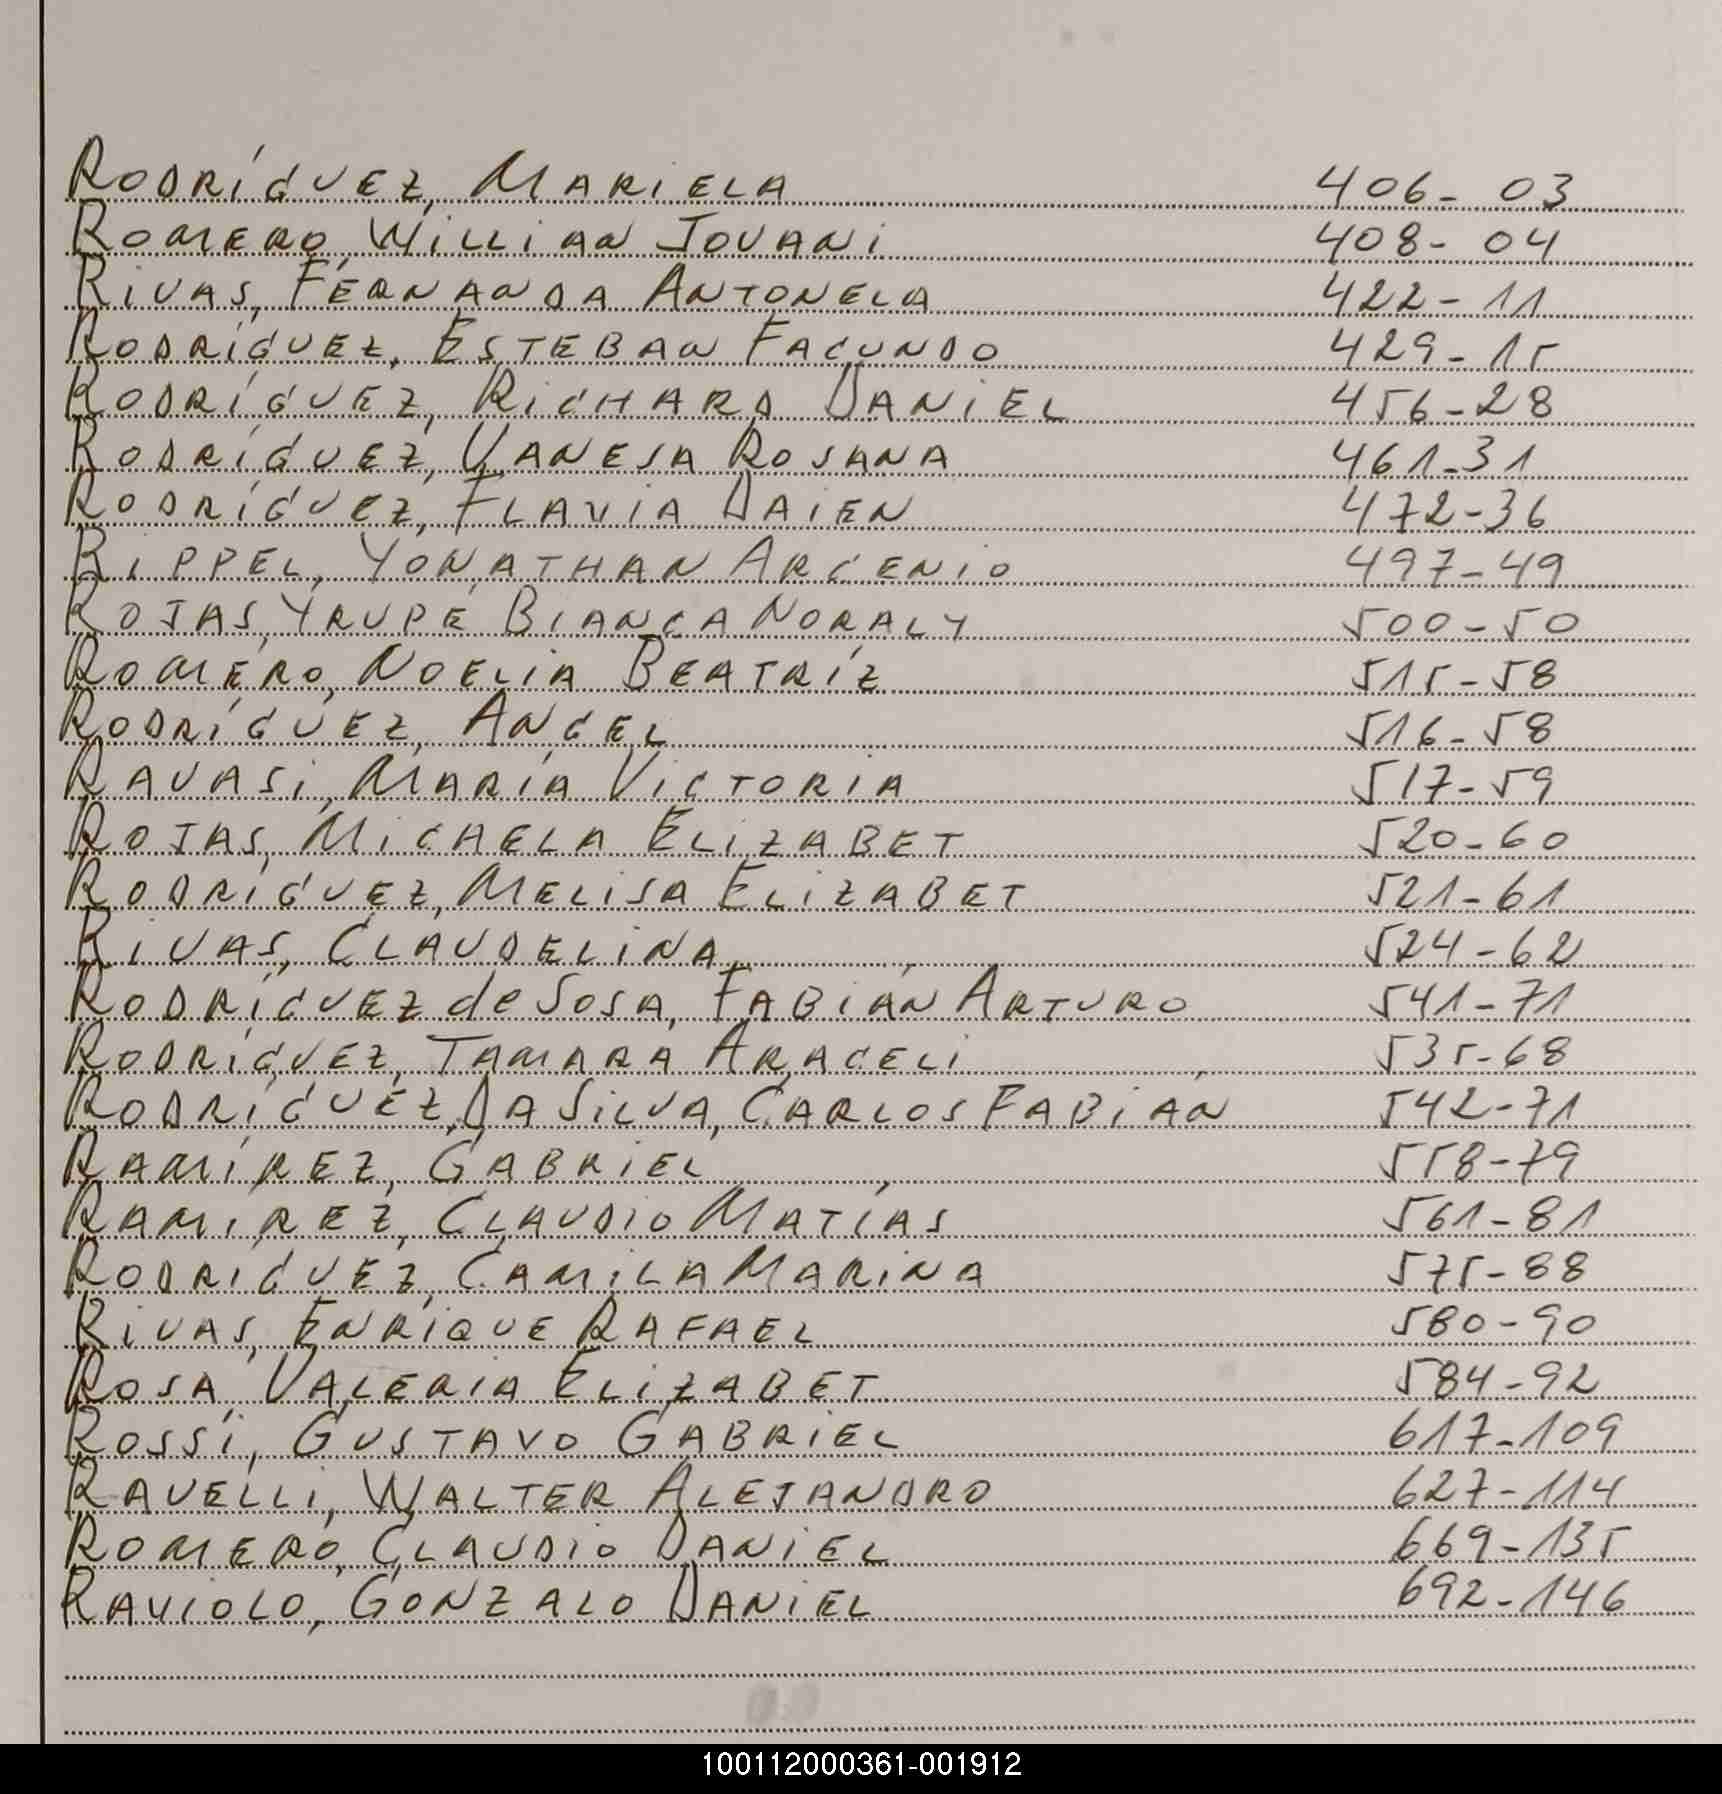 RODRÍGUEZ, MARIELA 406-03
ROMERO, WILLIAN JOVANI 408-04
RIVAS, FERNANDA ANTONELA 422-11
RODRÍGUEZ, ESTEBAN FACUNDO 429-15
RODRÍGUEZ, RICHARD DANIEL 456-28
RODRÍGUEZ, VANESA ROSANA 461-31
RODRÍGUEZ, FLAVIA DAIEN 472-36
RIPPEL, YONATHAN ARCENIO 497-49
ROJAS, YRUPÉ BIANCA NORALY 500-50
ROMERO, NOELIA BEATRÍZ 515-58
RODRÍGUEZ, ANGEL 516-58
RAVASI, MARÍA VICTORIA 517-59
ROJAS, MICAELA ELIZABET 520-60
RODRÍGUEZ, MELISA ELIZABET 521-61
RIVAS, CLAUDELINA 524-62
RODRÍGUEZ de SOSA, FABIÁN ARTURO 541-71
RODRÍGUEZ, TAMARA ARACELI 535-68
RODRÍGUEZ, DA SILVA, CARLOS FABIÁN 542-71
RAMÍREZ, GABRIEL 558-79
RAMIREZ, CLAUDIO MATÍAS 561-81
RODRÍGUEZ, CAMILA MARINA 575-88
RIVAS, ENRIQUE RAFAEL 580-90
ROSA VALERIA ELIZABET 584-92
ROSSI, GUSTAVO GABRIEL 617-109
RAVELLI, WALTER ALEJANDRO 627-114
ROMERO, CLAUDIO DANIEL 669-135
RAVIOLO, GONZALO DANIEL 692-146
100112000361-001912